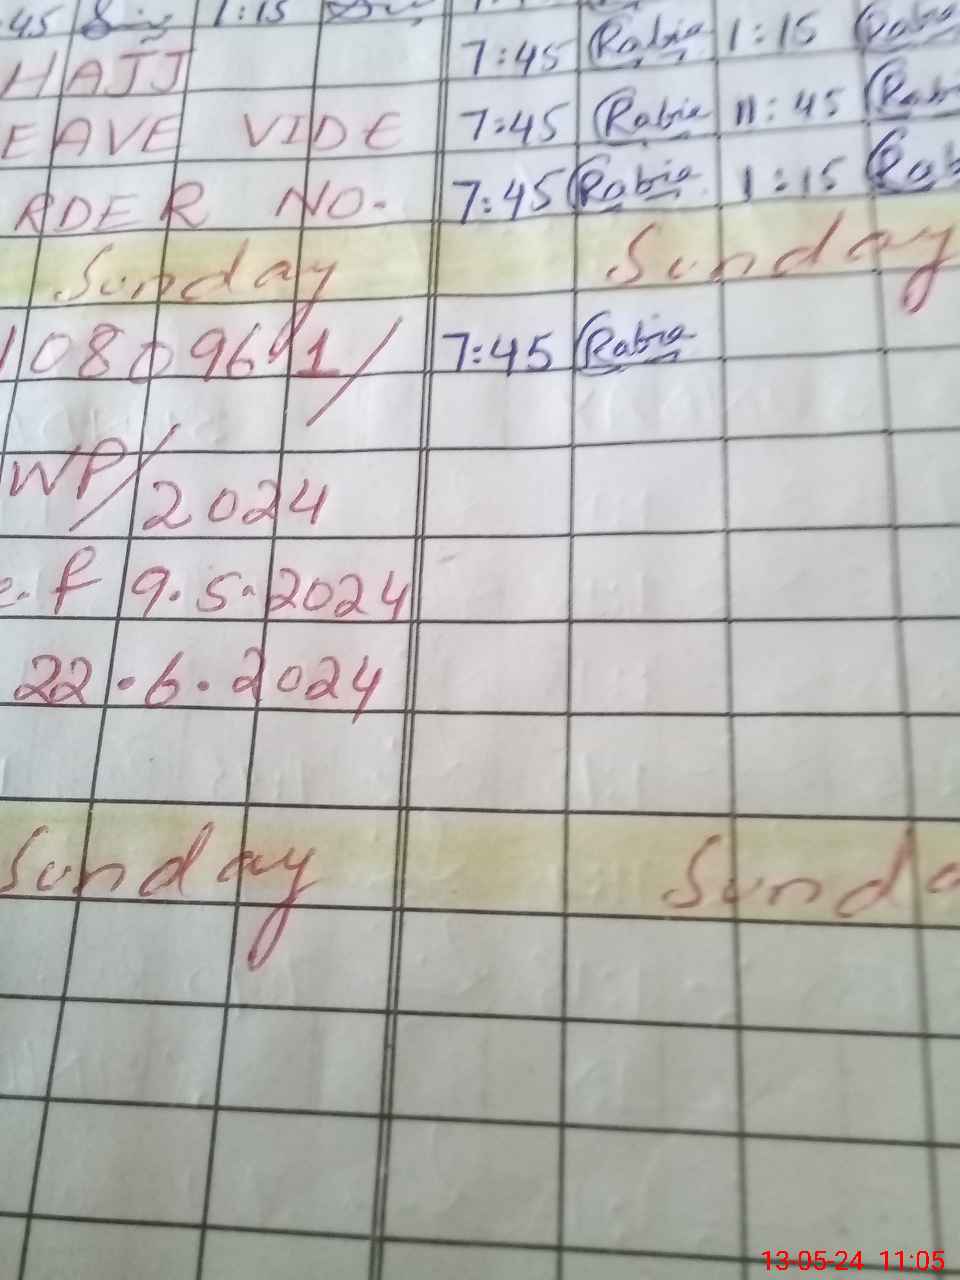 45 1:15
HAJJ 7:45 Rabia 1:15 Rabia
EAVE VIDE 7:45 Rabia 11:45 Rabi
RDER NO. 7:45 Rabia 1:15 Rab
Sunday Sunday
7:45 Rabia
WP/
2024
e.f 9.5.2024
22.6.2024
Sunday Sunda
13-05-24 11:05